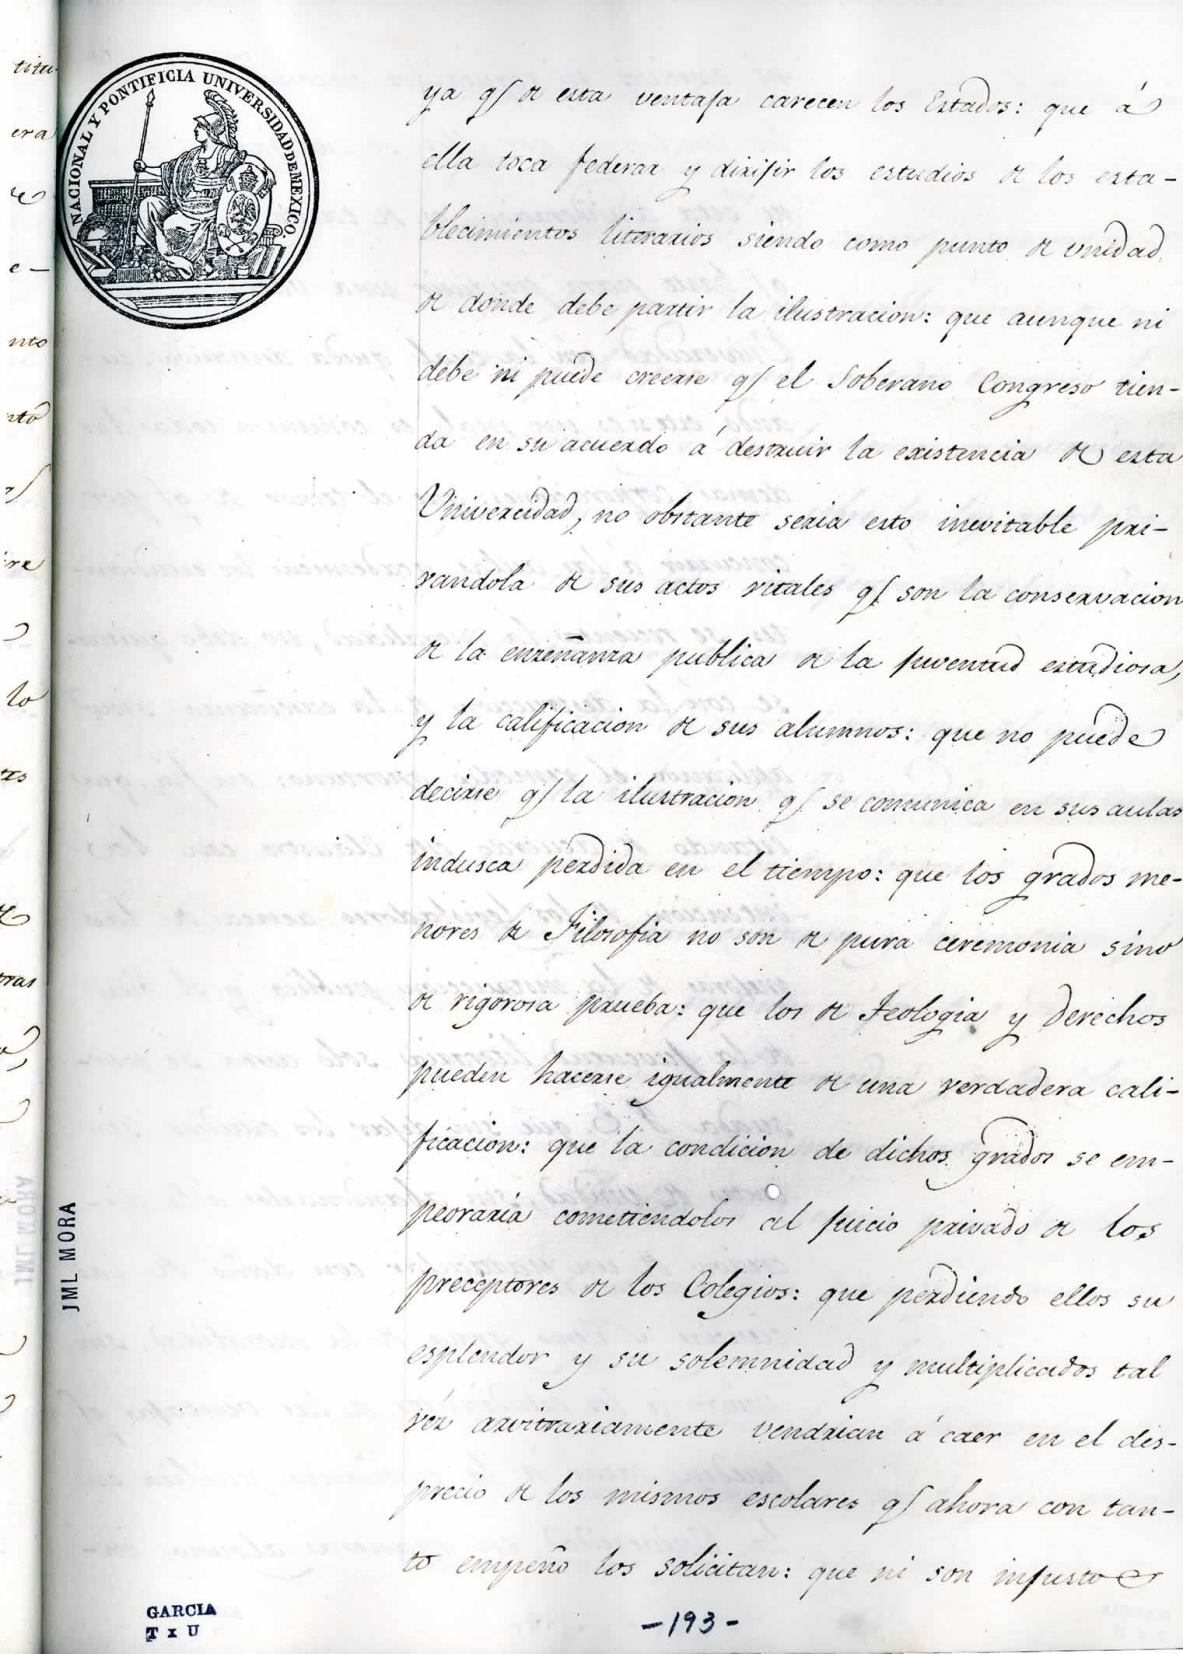 NACIONAL Y PONTIFICIA UNIVERSIDAD DE MEXICO
ya q͛ de esta ventaja carecen los Estados: que á
ella toca federar y dirijir los estudios de los esta-
blecimientos literarios siendo como punto de unidad
de donde debe partir la ilustracion: que aunque ni
debe ni puede creerse q͛ el Soberano Congreso tien-
da en su acuerdo á destruir la existencia de esta
Univercidad, no obstante seria esto inevitable pri-
vandola de sus actos vitales q͛ son la conservacion
de la enseñanza publica de la juventud estudiosa,
y la calificacion de sus alumnos: que no puede
decirse q͛ la ilustracion q͛ se comunica en sus aulas
indusca perdida en el tiempo: que los grados me-
nores de Filosofia no son de pura ceremonia sino
de rigorosa prueba: que los de Teologia y Derechos
pueden hacerse igualmente de una verdadera cali-
ficacion: que la condicion de dichos grados se em-
peoraria cometiendolos al juicio privado de los
preceptores de los Colegios: que perdiendo ellos su
esplendor y su solemnidad y multiplicados tal
véz arvitrariamente vendrian á caer en el des-
precio de los mismos escolares q͛ ahora con tan-
to empeño los solicitan: que ni son injusto
JML MORA
GARCIA
T x U
-193-